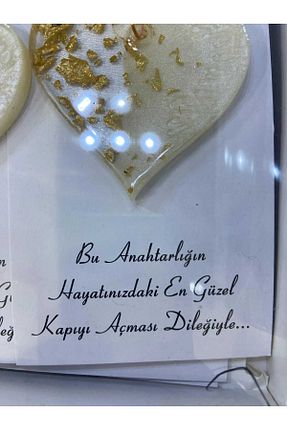 Bu Anahtarlığın
Hayatınızdaki En Güzel
Kapıyı Açması Dileğiyle...